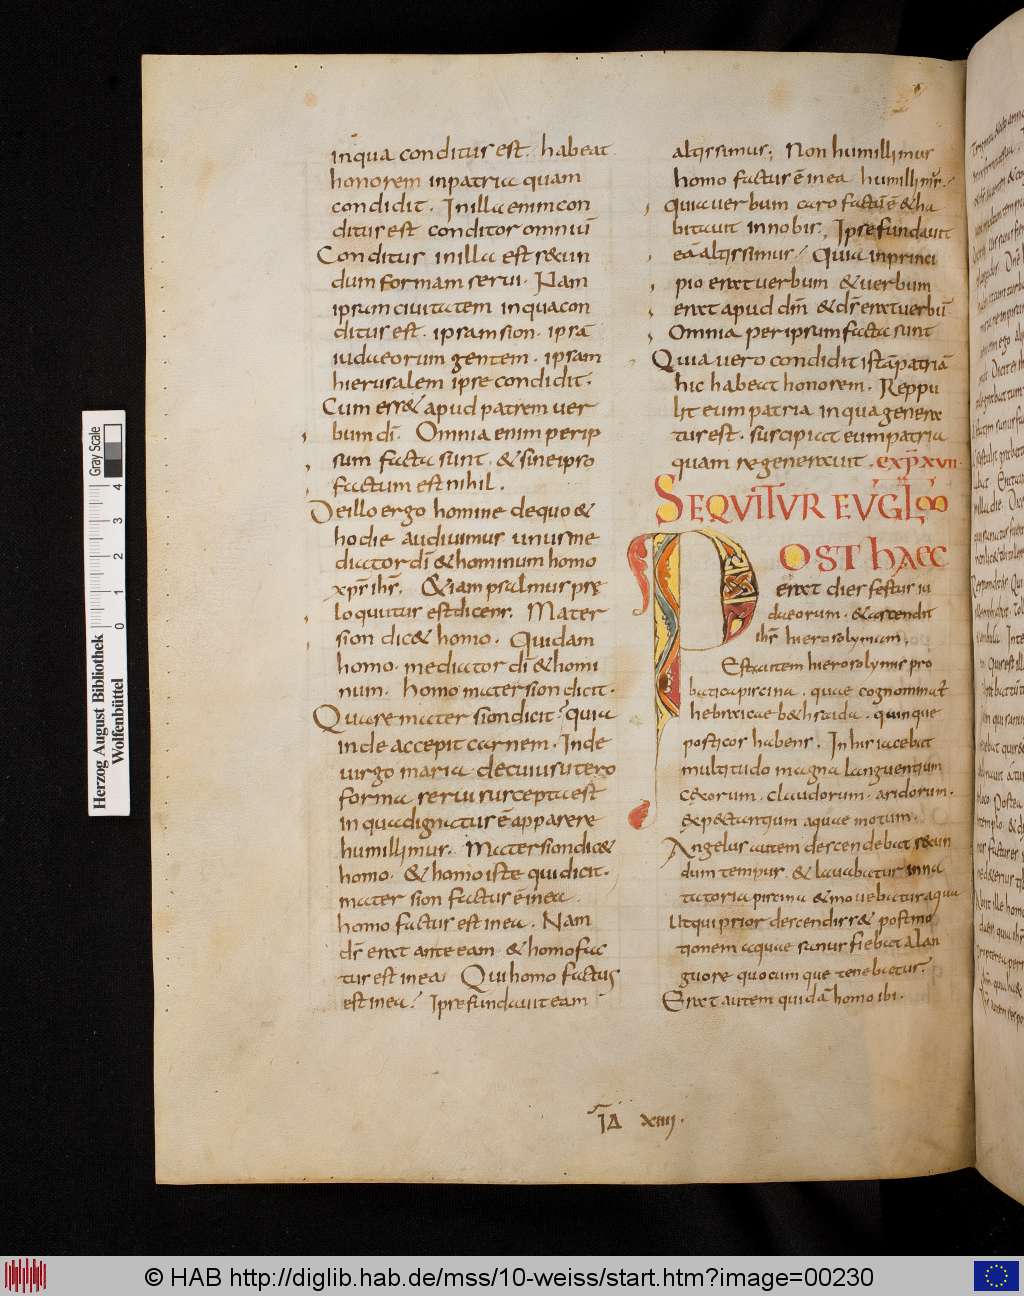 inqua conditus est. habeat
honorem inpatria quam
condidit. Inilla enim con
ditus est conditor omniū
Conditus inilla est s&cun
dum formam serui. Nam
ipsam ciuitatem inqua con
ditus est. ipsam sion. ipsā
iudaeorum gentem. ipsam
hierusalem ipse condidit.
Cum err& apud patrem uer
bum dī. Omnia enim per ip
sum facta sunt. & sine ipso
factum est nihil.
De illo ergo homine de quo &
hodie audiuimus unus me
diator dī & hominum homo
xp̄s ihs̄. & iam psalmus prę
loquutus est dicens. Mater
sion dic& homo. Quidam
homo. mediator dī & homi
num. homo mater sion dicit.
Quare mater sion dicit? quia
inde accepit carnem. Inde
uirgo maria de cuius utero
forma serui suscepta est
in qua dignatus ē apparere
humillimus. Mater sion dic&
homo. & homo iste qui dicit.
mater sion factus ē inea.
homo factus est inea. Nam
ds̄ erat ante eam & homo fac
tus est inea. Qui homo factus
est inea? Ipse fundauit eam
altissimus; Non humillimus
homo factus ē inea humillim;
quia uerbum caro factū ē & ha
bitauit in nobis. Ipse fundauit
eā altissimus. Quia inprinci
pio erat uerbum & uerbum
erat apud dm̄ & ds̄ erat uerbū
Omnia per ipsum facta sunt
Quia uero condidit istā patriā
hic habeat honorem. Reppu
lit eum patria in qua genera
tus est. suscipiat eum patria
quam regenerauit. exp̄ xvii.
SEQUITUR EUGL
POST hAEC
erat dies festus iu
daeorum. & ascendit
ihs̄ hierosolymam.
Est autem hierosolymis pro
batica piscina. quae cognominat̄
hebraicae b&hsaida. quinque
porticos habens. In his iacebat
multitudo magna languentium
cęcorum. claudorum. aridorum.
expectantium aquae motum.
Angelus autem descendebat s&cun
dum tempus & lauabatur inna
tatoria piscina & mouebatur aqua
Ut qui prior descendiss& post mo
tionem aquae sanus fiebat a lan
guore quocumque tenebatur.
Erat autem quidā homo ibi.
IA xiiii.
Gray Scale
4 3 2 1 0
Herzog August Bibliothek
Wolfenbüttel
© HAB http://diglib.hab.de/mss/10-weiss/start.htm?image=00230